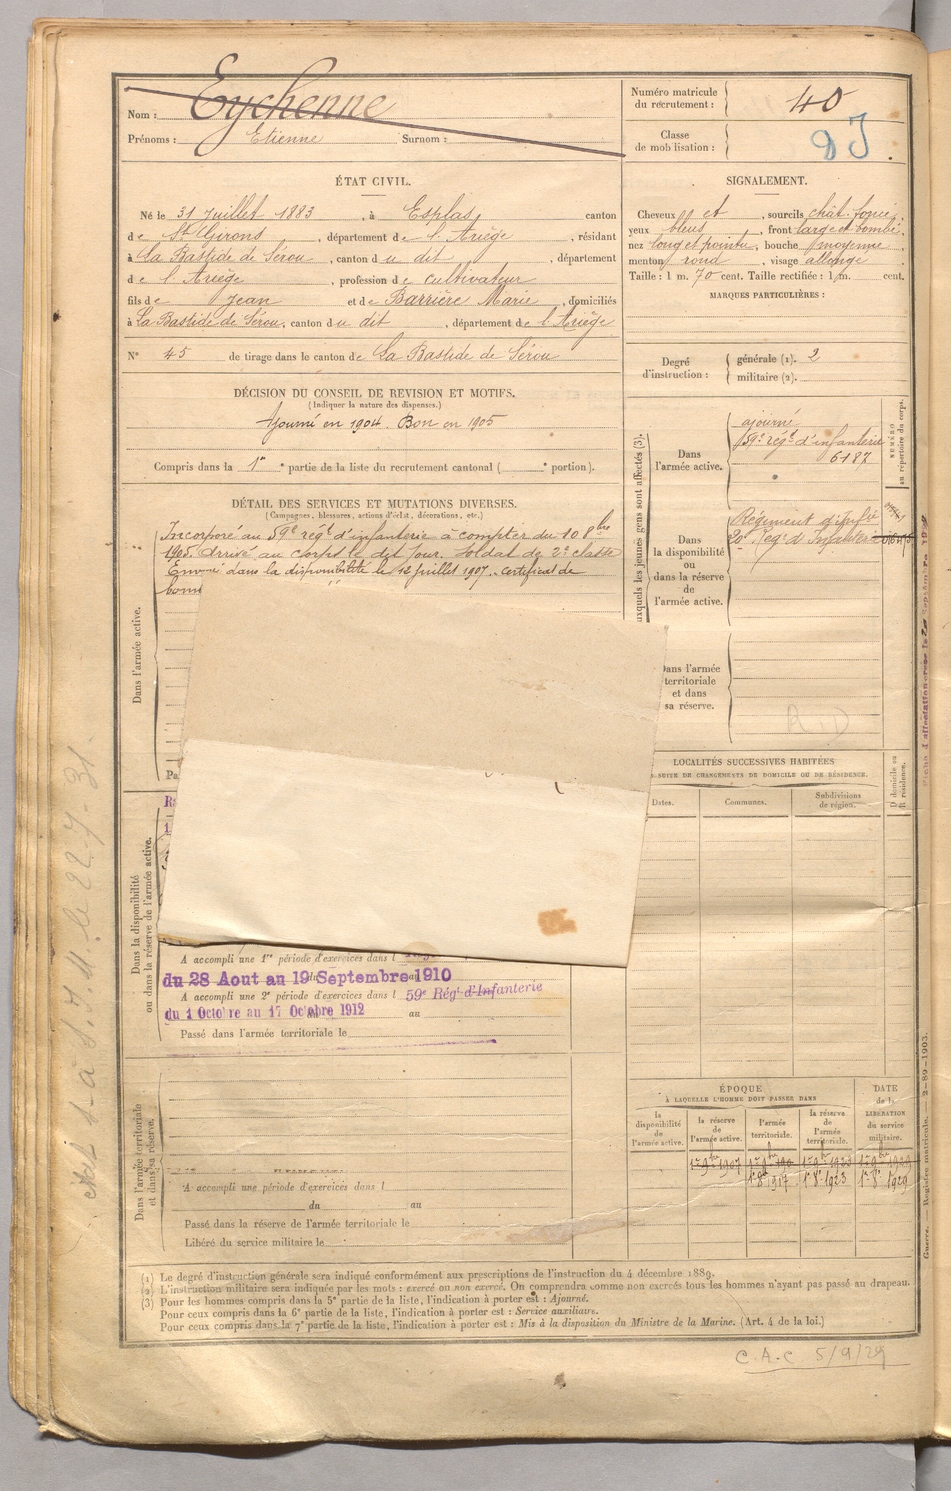 Nom : Eychenne
Prénoms : Etienne Surnom :
Numéro matricule
du recrutement : 40
Classe
de mobilisation :
ÉTAT CIVIL.
Né le 31 Juillet 1883, à Esplas, canton
de St Girons, département de l'Ariège, résidant
à La Bastide de Sérou, canton du dit, département
de l'Ariège, profession de cultivateur
fils de Jean et de Barrière Marie, domiciliés
à La Bastide de Sérou, canton du dit, département de l'Ariège
N° 45 de tirage dans le canton de La Bastide de Sérou
SIGNALEMENT.
Cheveux et, sourcils chât. foncé,
yeux bleus, front large et bombé,
nez long et pointu, bouche moyenne,
menton rond, visage allongé
Taille : 1 m. 70 cent. Taille rectifiée : 1 m. cent.
MARQUES PARTICULIÈRES :
Degré
d'instruction :
générale (1). 2
militaire (2).
DÉCISION DU CONSEIL DE REVISION ET MOTIFS.
(Indiquer la nature des dispenses.)
Ajourné en 1904. Bon en 1905
Compris dans la 1re partie de la liste du recrutement cantonal ( e portion).
DÉTAIL DES SERVICES ET MUTATIONS DIVERSES.
(Campagnes, blessures, actions d'éclat, décorations, etc.)
Incorporé au 59e régt d'infanterie à compter du 10 8bre
1905. Arrivé au corps le dit jour. Soldat de 2e classe
Envoyé dans la disponibilité le 12 Juillet 1907. Certificat de
Dans l'armée active.
uxquels les jeunes gens sont affectés (3).
NUMÉRO
au répertoire du corps.
Dans
l'armée active.
ajourné
59e régt d'infanterie
6187
Dans
la disponibilité
ou
dans la réserve
de
l'armée active.
Régiment d'Infie
Dans l'armée
territoriale
et dans
sa réserve.
LOCALITÉS SUCCESSIVES HABITÉES
SUITE DE CHANGEMENTS DE DOMICILE OU DE RÉSIDENCE.
Dates.
Communes.
Subdivisions
de région.
D domicile ou
R résidence.
Dans la disponibilité
ou dans la réserve de l'armée active.
A accompli une 1re période d'exercices dans l
du 28 Aout au 19 Septembre 1910
A accompli une 2e période d'exercices dans l 59e Régt d'Infanterie
du 1 Octobre au 17 Octobre 1912 au
Passé dans l'armée territoriale le
Dans l'armée territoriale
et dans sa réserve.
A accompli une période d'exercices dans l
du au
Passé dans la réserve de l'armée territoriale le
Libéré du service militaire le
ÉPOQUE
À LAQUELLE L'HOMME DOIT PASSER DANS
la
disponibilité
de
l'armée active.
la réserve
de
l'armée active.
l'armée
territoriale.
la réserve
de
l'armée
territoriale.
DATE
de la
LIBÉRATION
du service
militaire.
1er 9bre 1907
1er 8bre 1917 1er 8bre 1923 1er 8bre 1929
(1) Le degré d'instruction générale sera indiqué conformément aux prescriptions de l'instruction du 4 décembre 1889.
(2) L'instruction militaire sera indiquée par les mots : exercé ou non exercé. On comprendra comme non exercés tous les hommes n'ayant pas passé au drapeau.
(3) Pour les hommes compris dans la 5e partie de la liste, l'indication à porter est : Ajourné.
Pour ceux compris dans la 6e partie de la liste, l'indication à porter est : Service auxiliaire.
Pour ceux compris dans la 7e partie de la liste, l'indication à porter est : Mis à la disposition du Ministre de la Marine. (Art. 4 de la loi.)
Guerre. — Registre matricule. — 2-89-1903.
C.A.C 5/9/29